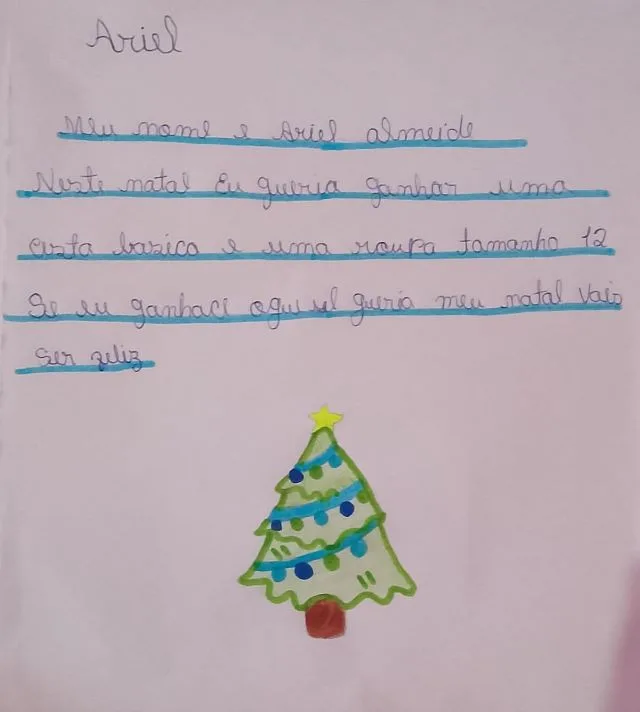 Ariel
Meu nome e Ariel almeide
Neste natal Eu gueria ganhar uma
cista basica e uma roupa tamanho 12
Se eu ganhace o gui ul gueria meu natal vais
ser feliz